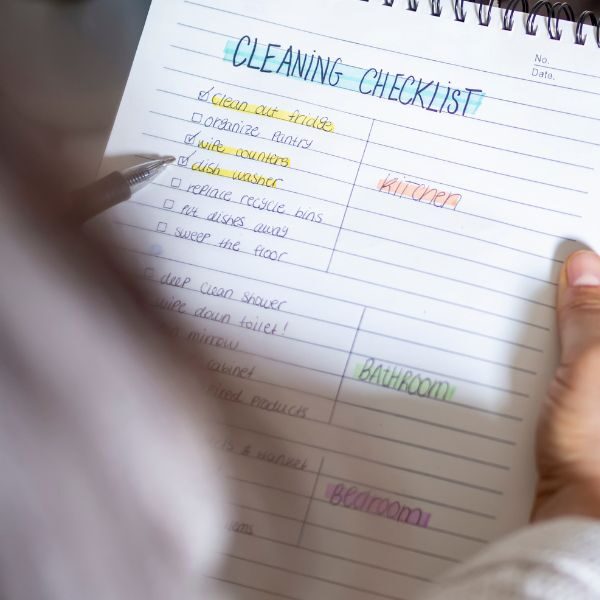 No.
Date.
CLEANING CHECKLIST
clean out fridge
organize pantry
wipe counters
dish washer
replace recycle bins
put dishes away
sweep the floor
Kitchen
deep clean shower
wipe down toilet!
mirrow
cabinet
Products
BATHROOM
& blanket
Bedroom